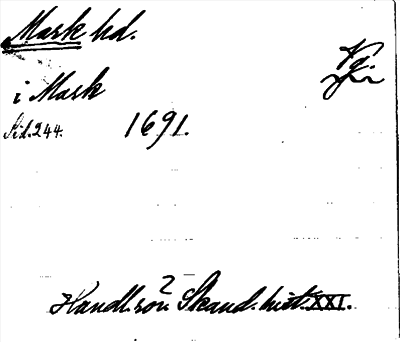 Mark hd.
Vg.
i Mark
Sid. 244. 1691.
Handl. rör. Skand. hist. XXI.